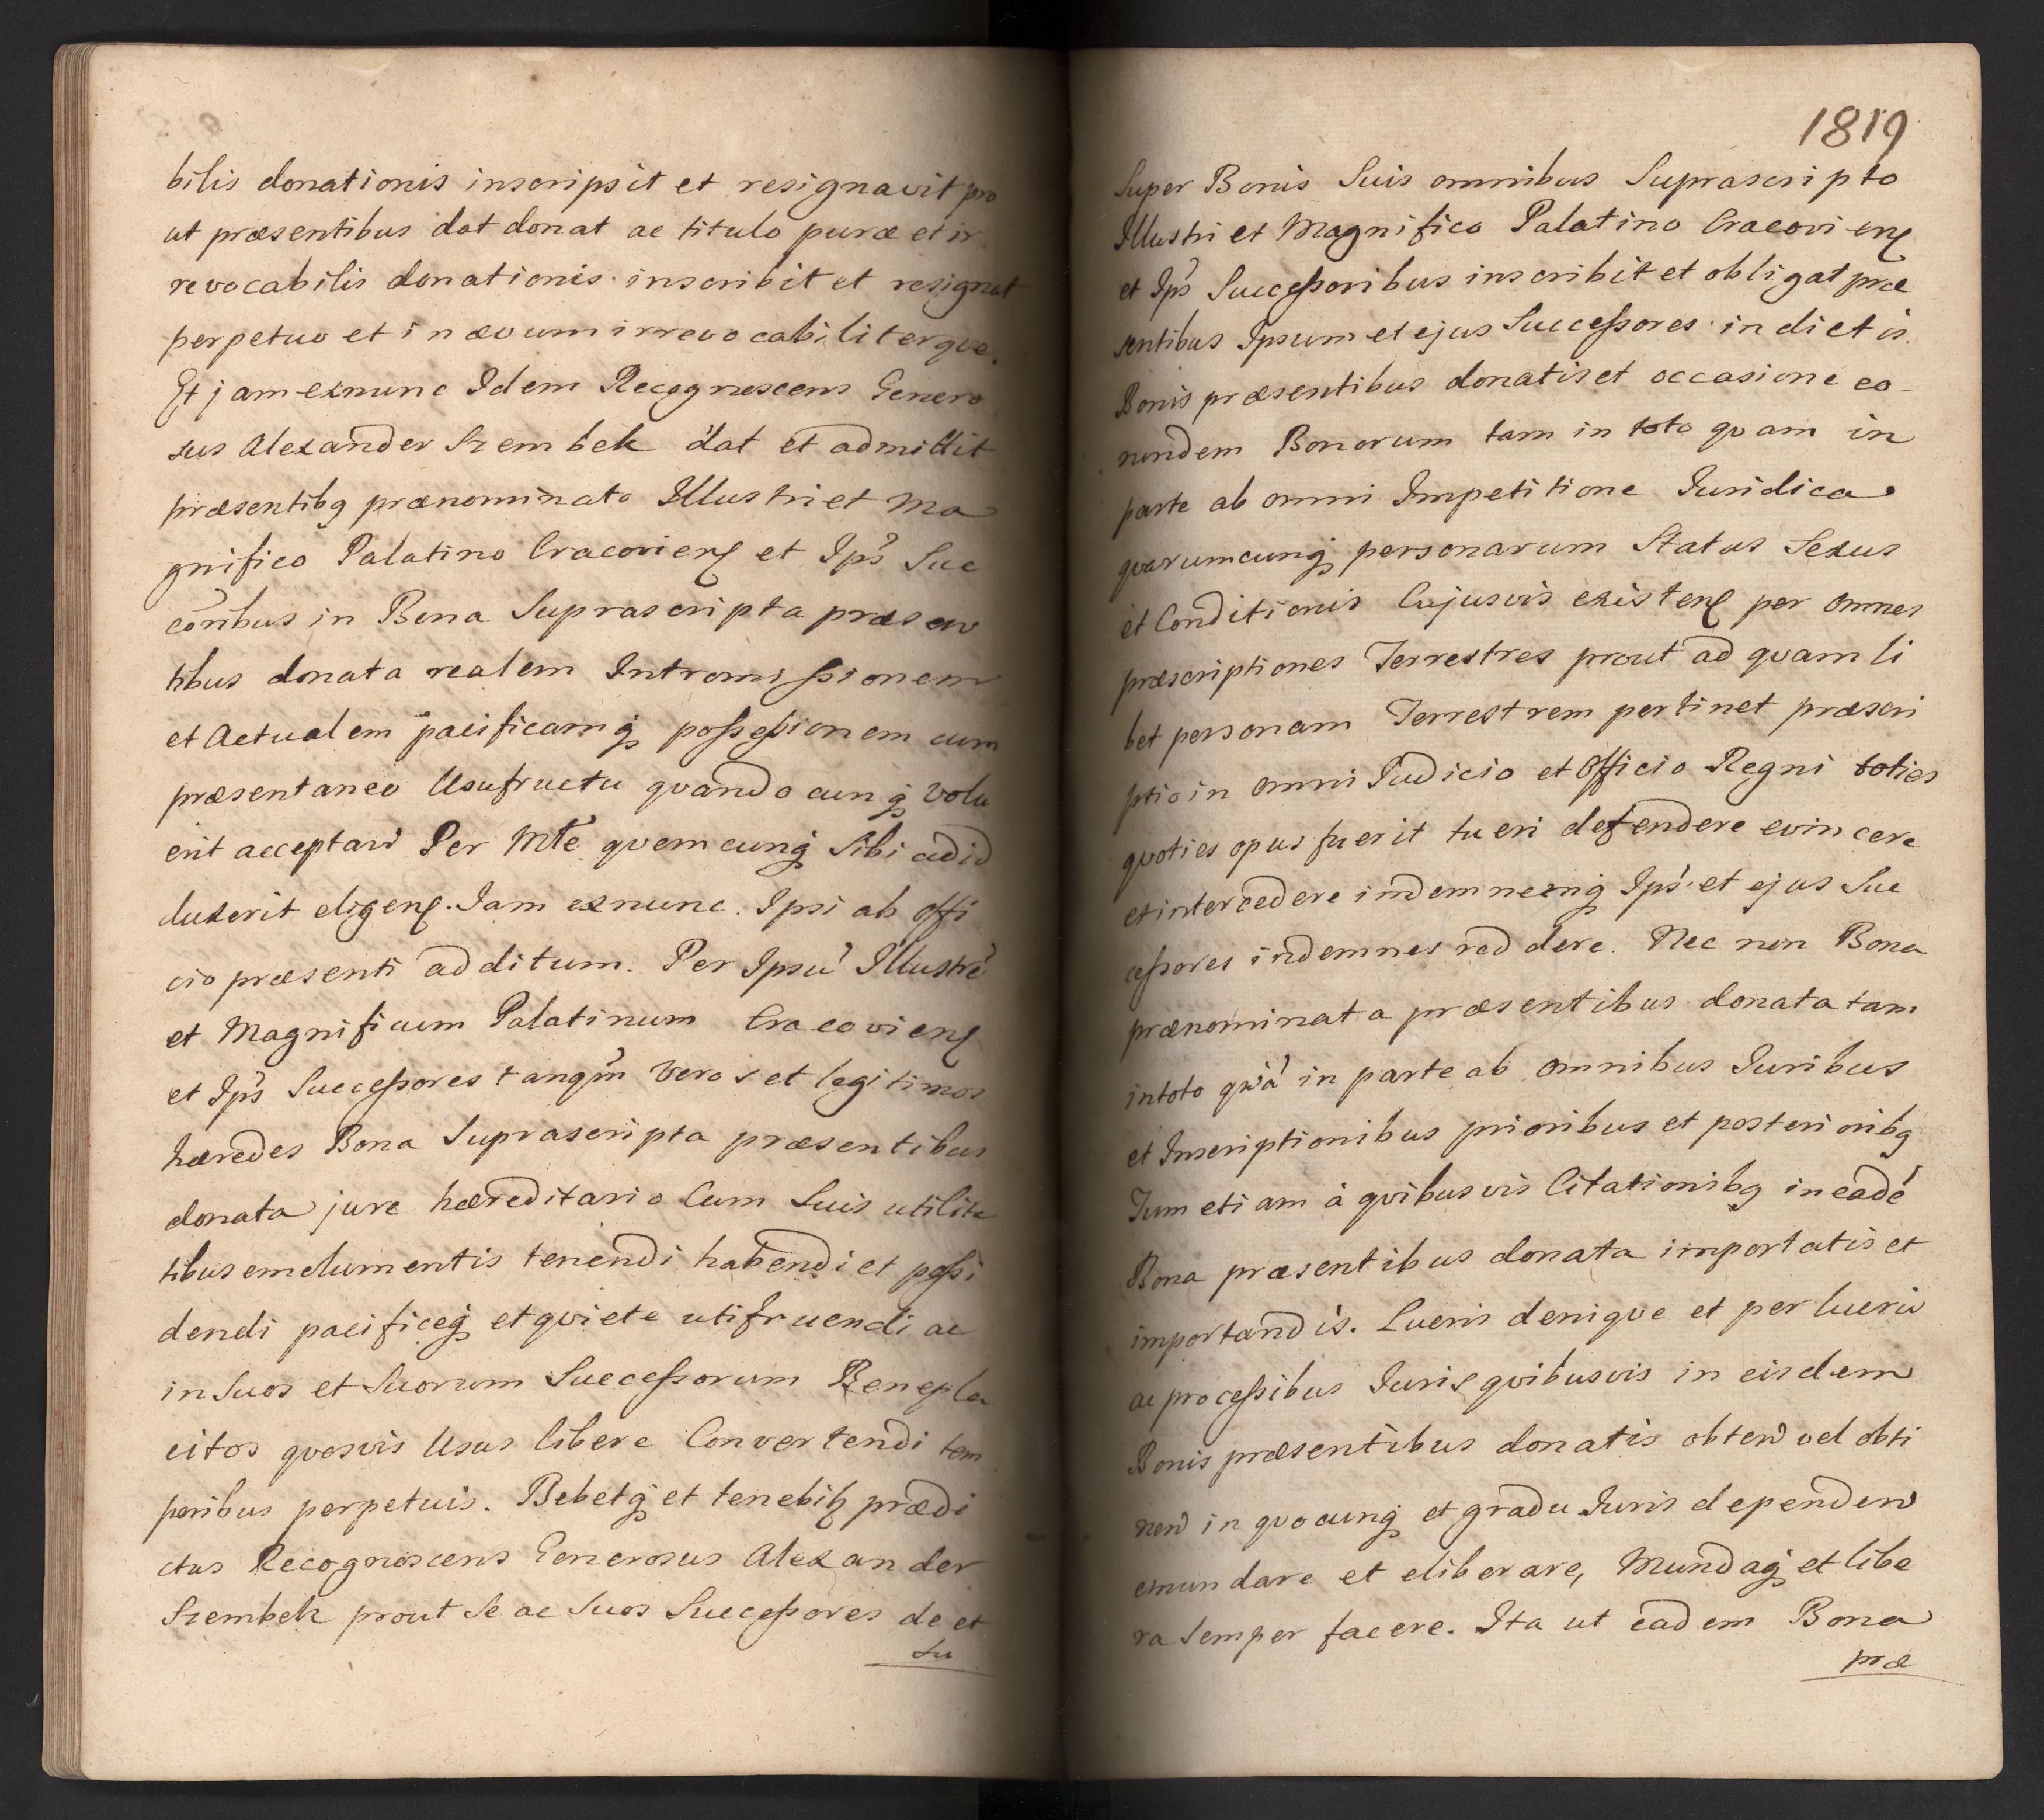 bilis donationis inscripsit et resignavit pro
ut præsentibus dat donat ac titulo puræ et ir
revocabilis donationis inscribit et resignat
perpetuo et in ævum irrevocabiliterqve.
Et jam exnunc Idem Recognoscens Genero
sus Alexander Szembek dat et admittit
præsentibq prænominato Illustri et Ma
gnifico Palatino Cracovienſ et Ips̃ Suc
cōribus in Bona Suprascripta præsen
tibus donata realem Intromissionem
et Actualem pacificamq possessionem cum
præsentaneo Usufructu qvandocunq volu
erit acceptañ Per Mte qvemcunq Sibi ad id
duxerit eligenſ. Iam exnunc. Ipsi ab offi
cio præsenti additum. Per Ipsũ Illustrẽ
et Magnificum Palatinum Cracovienſ
et Ips̃ Successores tanqm̃ Veros et legitimos
hæredes Bona Suprascripta præsentibus
donata jure hæreditario Cum Suis utilita
tibus emolumentis tenendi habendi et possi
dendi pacificeq et qviete utifruendi ac
in Suos et Suorum Successorum Benepla
citos qvosvis Usus libere Convertendi tem
poribus perpetuis. Debetq et tenebit prædi
ctus Recognoscens Generosus Alexander
Szembek prout Se ac Suos Successores de et
Su
1819
Super Bonis Suis omnibus Suprascripto
Illustri et Magnifico Palatino Cracovienſ
et Ips̃ Successoribus inscribit et obligat præ
sentibus Ipsum et ejus Successores in dictis
Bonis præsentibus donatis et occasione eo-
rundem Bonorum tam in toto qvam in
parte ab omni Impetitione Iuridica
qvarumcunq personarum Status Sexus
et Conditionis Cujusvis existenſ per omnes
præscriptiones Terrestres prout ad qvamli
bet personam Terrestrem pertinet præscri
ptio in omni Iudicio et Officio Regni toties
qvoties opus fuerit tueri defendere evincere
et intercedere indemnemq Ips̃ et ejus Suc
cessores indemnes reddere. Nec non Bona
prænominata præsentibus donata tam
in toto qvã in parte ab omnibus Iuribus
et Inscriptionibus prioribus et posterioribq
Tum etiam à qvibusvis Citationibq in eadẽ
Bona præsentibus donata importatis et
importandis. Lucris deniqve et perlucris
ac processibus Iuris qvibusvis in eisdem
Bonis præsentibus donatis obteñ vel obti
neñ in qvocunq et gradu Iuris dependeñ
emundare et eliberare, Mundaq et libe
ra Semper facere. Ita ut eadem Bona
præ